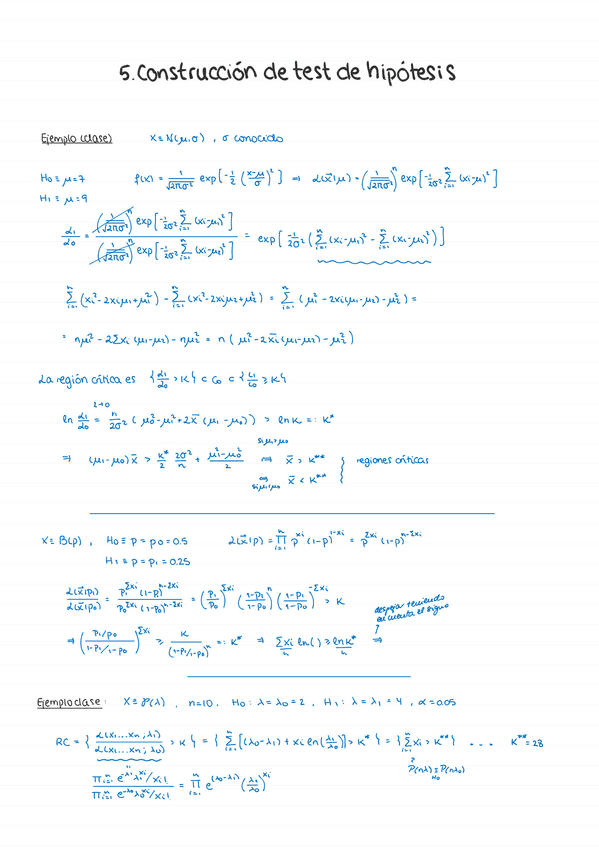 5. Construcción de test de hipótesis
Ejemplo (clase) X≡N(μ,σ) , σ conocido
H0 ≡ μ=7 f(x) = 1/√(2πσ²) exp[-1/2 ((x-μ)/σ)²] ⇒ L(x⃗|μ) = (1/√(2πσ²))^n exp[-1/2σ² Σ_{i=1}^n (xi-μ)²]
H1 ≡ μ=9
L1/L0 = (1/√(2πσ²))^n exp[-1/2σ² Σ_{i=1}^n (xi-μ1)²] / (1/√(2πσ²))^n exp[-1/2σ² Σ_{i=1}^n (xi-μ2)²] = exp[-1/2σ² (Σ_{i=1}^n (xi-μ1)² - Σ_{i=1}^n (xi-μ2)²)]
Σ_{i=1}^n (xi²-2xiμ1+μ1²) - Σ_{i=1}^n (xi²-2xiμ2+μ2²) = Σ_{i=1}^n (μ1² - 2xi(μ1-μ2) - μ2²) =
= nμ1² - 2Σxi (μ1-μ2) - nμ2² = n (μ1² - 2x̄(μ1-μ2) - μ2²)
La región crítica es {L1/L0 > K} ⊂ C0 ⊂ {L1/L0 ≥ K}
2→0
ln L1/L0 = n/2σ² (μ0²-μ1²+2x̄ (μ1-μ0)) > ln K =: K*
⇒ (μ1-μ0) x̄ > K*/2 2σ²/n + (μ1²-μ0²)/2 ⇒ x̄ > K** } regiones críticas
si μ1>μ0
x̄ < K**
si μ1<μ0
X≡B(p) , H0 ≡ p = p0 = 0.5 L(x⃗|p) = Π_{i=1}^n p^{xi} (1-p)^{1-xi} = p^{Σxi} (1-p)^{n-Σxi}
H1 ≡ p = p1 = 0.25
L(x⃗|p1)/L(x⃗|p0) = p1^{Σxi} (1-p1)^{n-Σxi} / p0^{Σxi} (1-p0)^{n-Σxi} = (p1/p0)^{Σxi} ((1-p1)/(1-p0))^n ((1-p1)/(1-p0))^{-Σxi} > K
despejar teniendo
en cuenta el signo
⇒ ((p1/p0)/(1-p1/1-p0))^{Σxi} ≥ K/((1-p1/1-p0)^n) =: K* ⇒ Σxi/n ln( ) ≥ ln K*/n ⇒
Ejemplo clase: X≡P(λ) , n=10 . H0: λ=λ0=2 , H1: λ=λ1=4 , α=0.05
RC = { L(x1...xn; λ1)/L(x1...xn; λ0) > K } = { Σ_{i=1}^n [(λ0-λ1) + xi ln(λ1/λ0)] > K* } = { Σ_{i=1}^n xi > K** } ... K**=28
P(nλ) ≡ P(nλ0)
H0
Π_{i=1}^n e^{-λ1} λ1^{xi}/xi! / Π_{i=1}^n e^{-λ0} λ0^{xi}/xi! = Π_{i=1}^n e^{(λ0-λ1)} (λ1/λ0)^{xi}